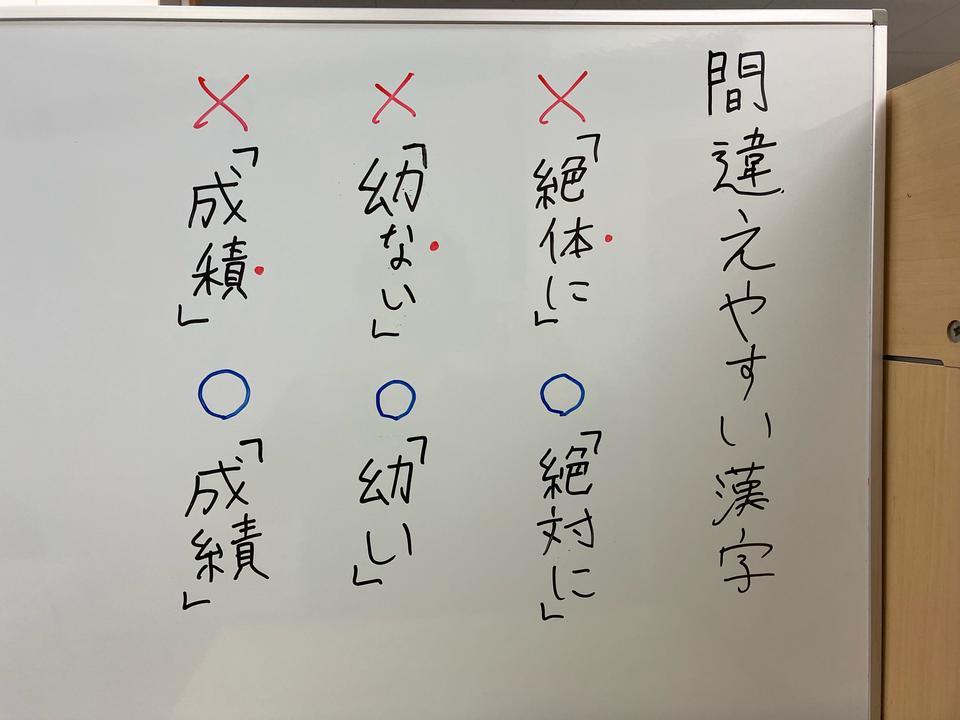 間違えやすい漢字
×「絶体に」 ○「絶対に」
×「幼ない」 ○「幼い」
×「成積」 ○「成績」